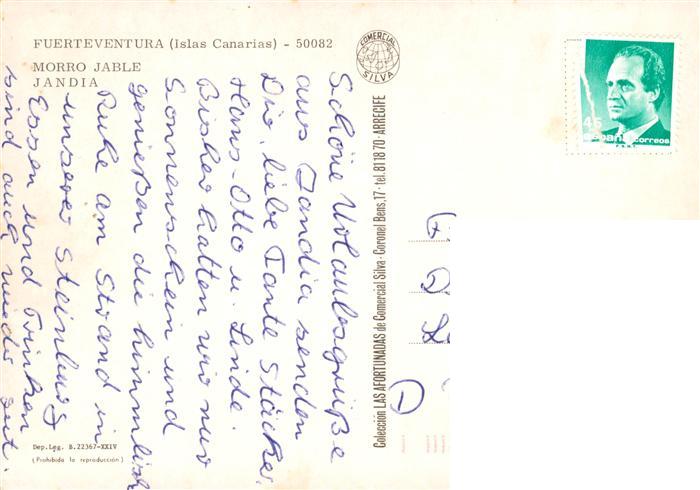 FUERTEVENTURA (Islas Canarias) - 50082
MORRO JABLE
JANDIA
COMERCIAL
SILVA
45
españa correos
Schöne Urlaubsgrüße
aus Jandia senden
Dir, liebe Tante Stäcker,
Hans-Otto u. Linde.
Bisher hatten wir nur
Sonnenschein und
genießen die himmlische
Ruhe am Strand in
unserer Steinburg
Essen und Trinken
sind auch wieder gut.
Colección LAS AFORTUNADAS de Comercial Silva - Coronel Bens, 17 - tel. 81 18 70 - ARRECIFE
D
Dep. Leg. B. 22367-XXIV
(Prohibida la reproducción)